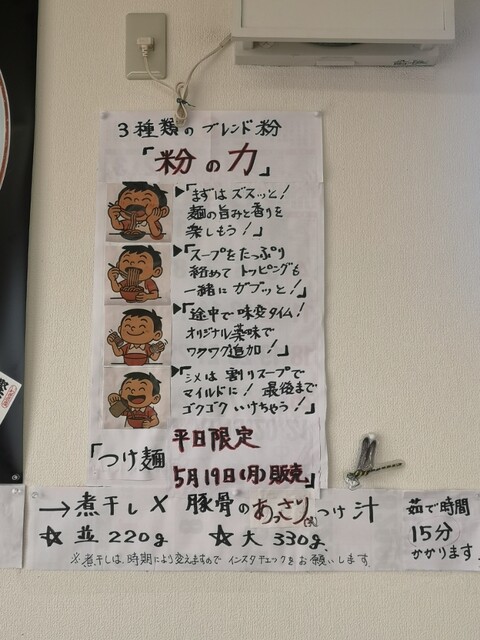 3種類のブレンド粉
「粉の力」
▶「まずはズズッと!
麺の旨みと香りを
楽しもう!」
▶「スープをたっぷり
絡めてトッピングも
一緒にガブッと!」
▶「途中で味変タイム!
オリジナル薬味で
ワクワク追加!」
▶「シメは割りスープで
マイルドに! 最後まで
ゴクゴクいけちゃう!」
「つけ麺
平日限定
5月19日(月)販売」
→煮干し×豚骨のあっさりつけ汁
☆並220g ☆大330g
※煮干しは、時期により変えますのでインスタチェックをお願いします
茹で時間
15分
かかります